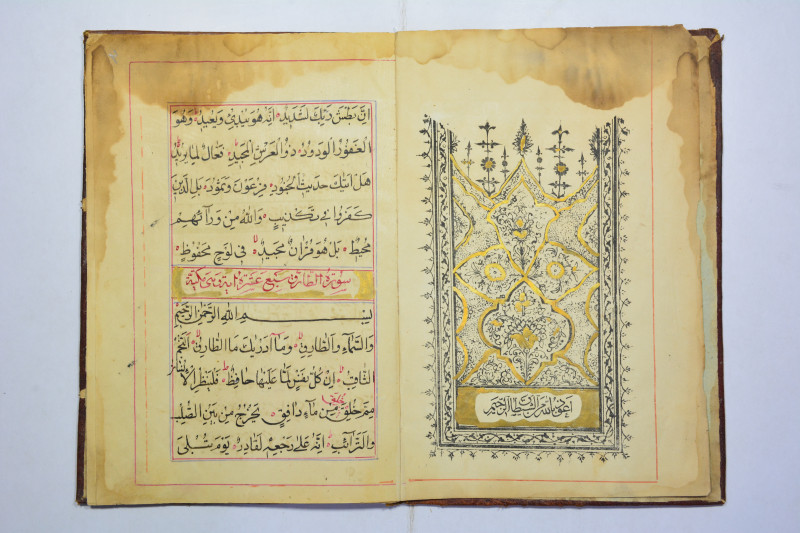 اعوذ بالله من الشیطان الرجیم
اِنَّ بَطْشَ رَبِّكَ لَشَدِيدٌ اِنَّهُ هُوَ يُبْدِئُ وَيُعِيدُ وَهُوَ
الْغَفُورُ الْوَدُودُ ذُو الْعَرْشِ الْمَجِيدُ فَعَّالٌ لِمَا يُرِيدُ
هَلْ اَتٰيكَ حَدِيثُ الْجُنُودِ فِرْعَوْنَ وَثَمُودَ بَلِ الَّذِينَ
كَفَرُوا فِي تَكْذِيبٍ وَاللهُ مِنْ وَرَآئِهِمْ
مُحِيطٌ بَلْ هُوَ قُرْاٰنٌ مَجِيدٌ فِي لَوْحٍ مَحْفُوظٍ
سورة الطارق سبع عشرة اية وهي مكية
بِسْمِ اللهِ الرَّحْمٰنِ الرَّحِيمِ
وَالسَّمَآءِ وَالطَّارِقِ وَمَآ اَدْرٰيكَ مَا الطَّارِقُ اَلنَّجْمُ
الثَّاقِبُ اِنْ كُلُّ نَفْسٍ لَمَّا عَلَيْهَا حَافِظٌ فَلْيَنْظُرِ الْاِنْسَانُ
مِمَّ خُلِقَ خُلِقَ مِنْ مَآءٍ دَافِقٍ يَخْرُجُ مِنْ بَيْنِ الصُّلْبِ
وَالتَّرَآئِبِ اِنَّهُ عَلٰى رَجْعِهِ لَقَادِرٌ يَوْمَ تُبْلَى